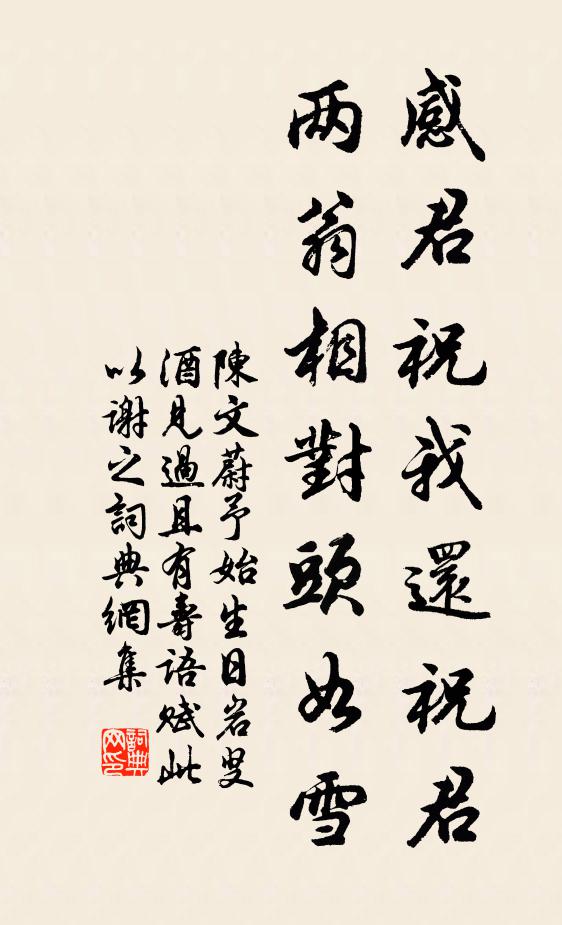 感君祝我還祝君
两翁相對頭如雪
陳文蔚予始生日岩叟
酒見過且有壽語賦此
以谢之詞典網集
詞典网印